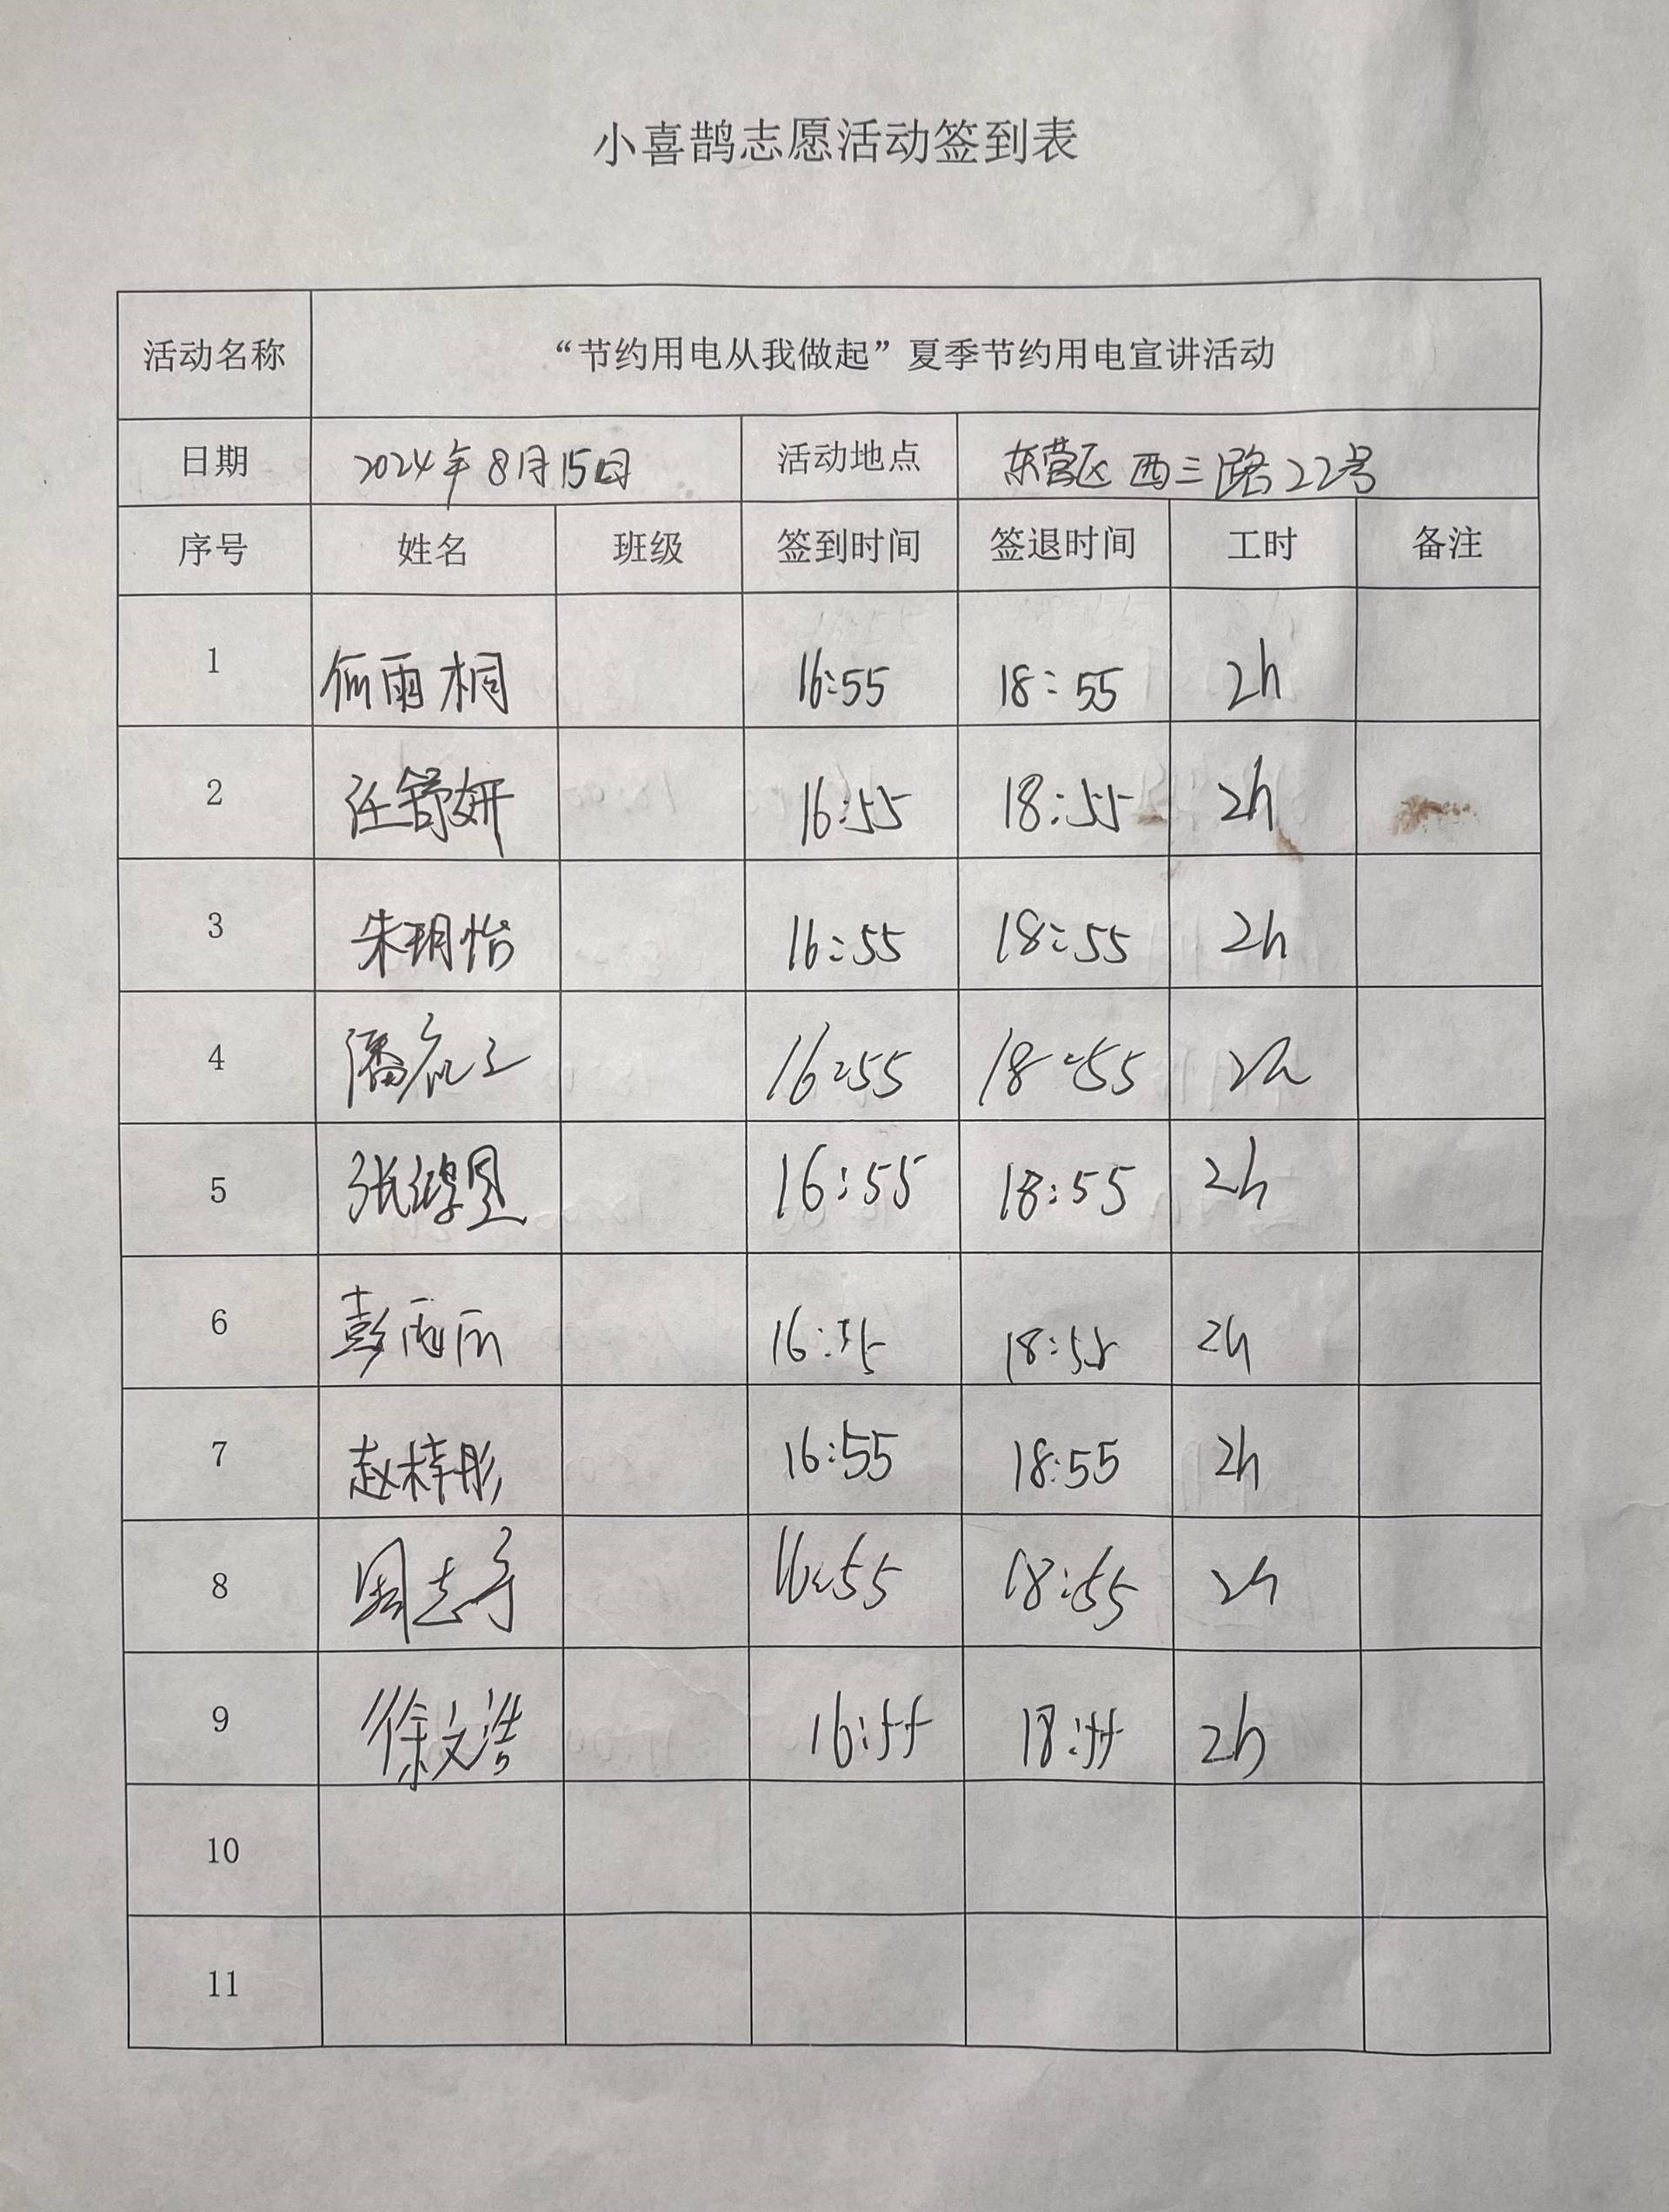 小喜鹊志愿活动签到表
活动名称 “节约用电从我做起”夏季节约用电宣讲活动
日期 2024年8月15日 活动地点 东营区西三路22号
序号 姓名 班级 签到时间 签退时间 工时 备注
1 雨桐 16:55 18:55 2h
2 任舒妍 16:55 18:55 2h
3 朱玥怡 16:55 18:55 2h
4 潘 16:55 18:55 2h
5 张 16:55 18:55 2h
6 彭雨 16:55 18:55 2h
7 赵梓彤 16:55 18:55 2h
8 周志宇 16:55 18:55 2h
9 徐文浩 16:55 18:55 2h
10
11